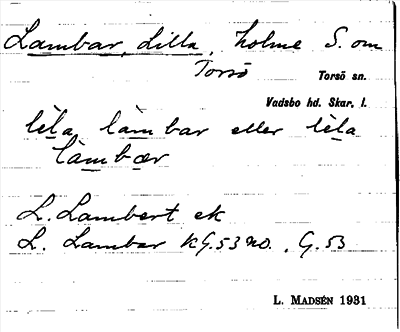 Lambar, Lilla, holme S. om
Torsö
Torsö sn.
Vadsbo hd. Skar. l.
lèla làmbar eller lèla
làmbær
L. Lambert ek
L. Lambar KG.53 NO., G.53
L. MADSÉN 1931